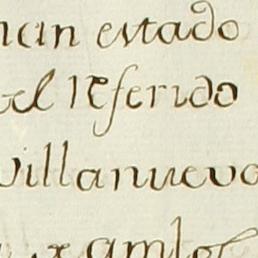 han estado
el referido
Villanueva